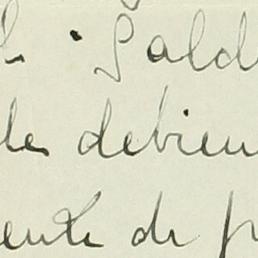 Gald
les debien
ente de p